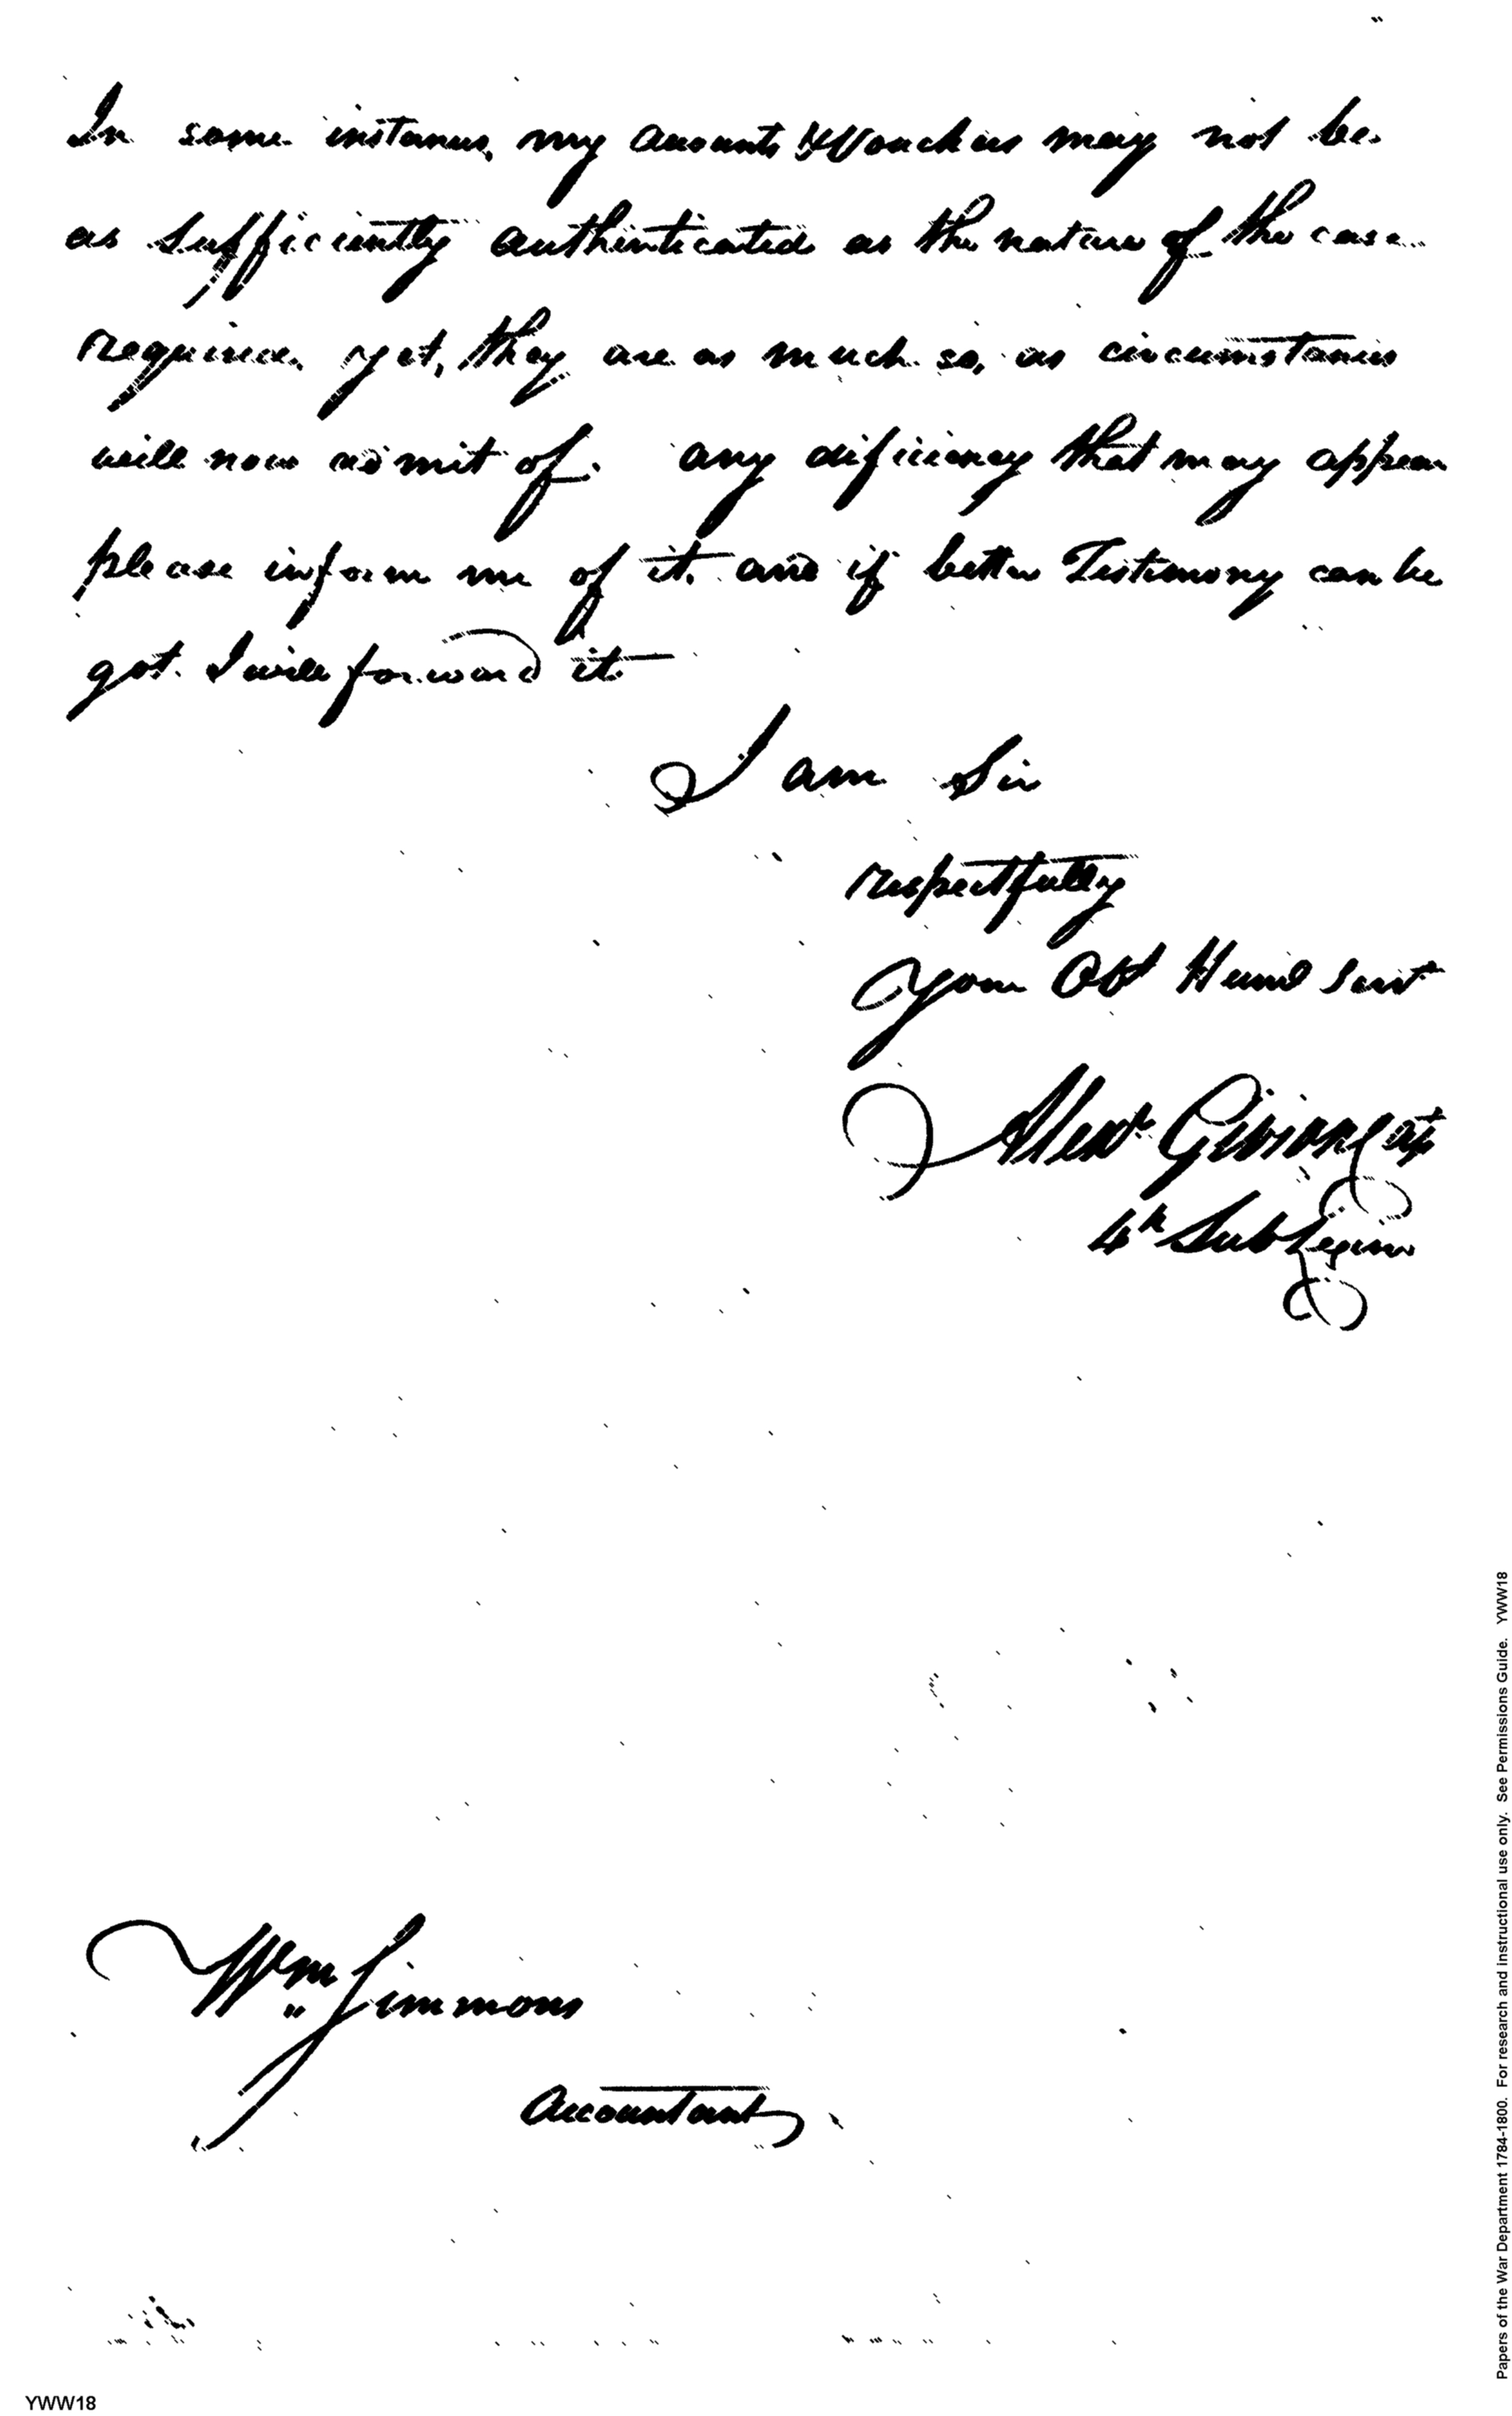 In some instances, my accounts & Vouchers may not be
as sufficiently authenticated as the nature of the case
requires, yet, they are as much so, as circumstances
will now admit of. any dificiency that may appear
please inform me of it. and if better Testimony can be
got. I will forward it.
I am Sir
respectfully
Your Obt Huml Servt
Alexr Gibson Capt
4th Sub Legion
Wm Simmons
Accountant
YWW18
Papers of the War Department 1784-1800. For research and instructional use only. See Permissions Guide. YWW18